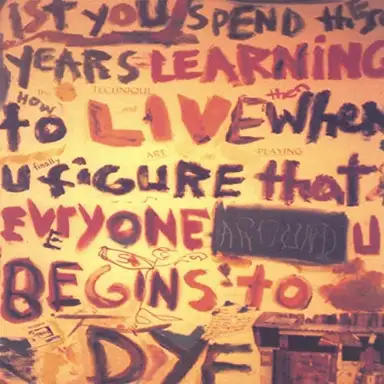 1ST YOU SPEND
YEARS LEARNING
HOW TECHNIQUE then
to LIVE When
and
ART PLAYING
finally
U FiGURE that
EVErYONE AROUND U
BEGINS to
DYE